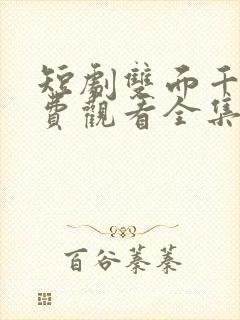 短劇雙面千
費觀看全集
百谷蓁蓁